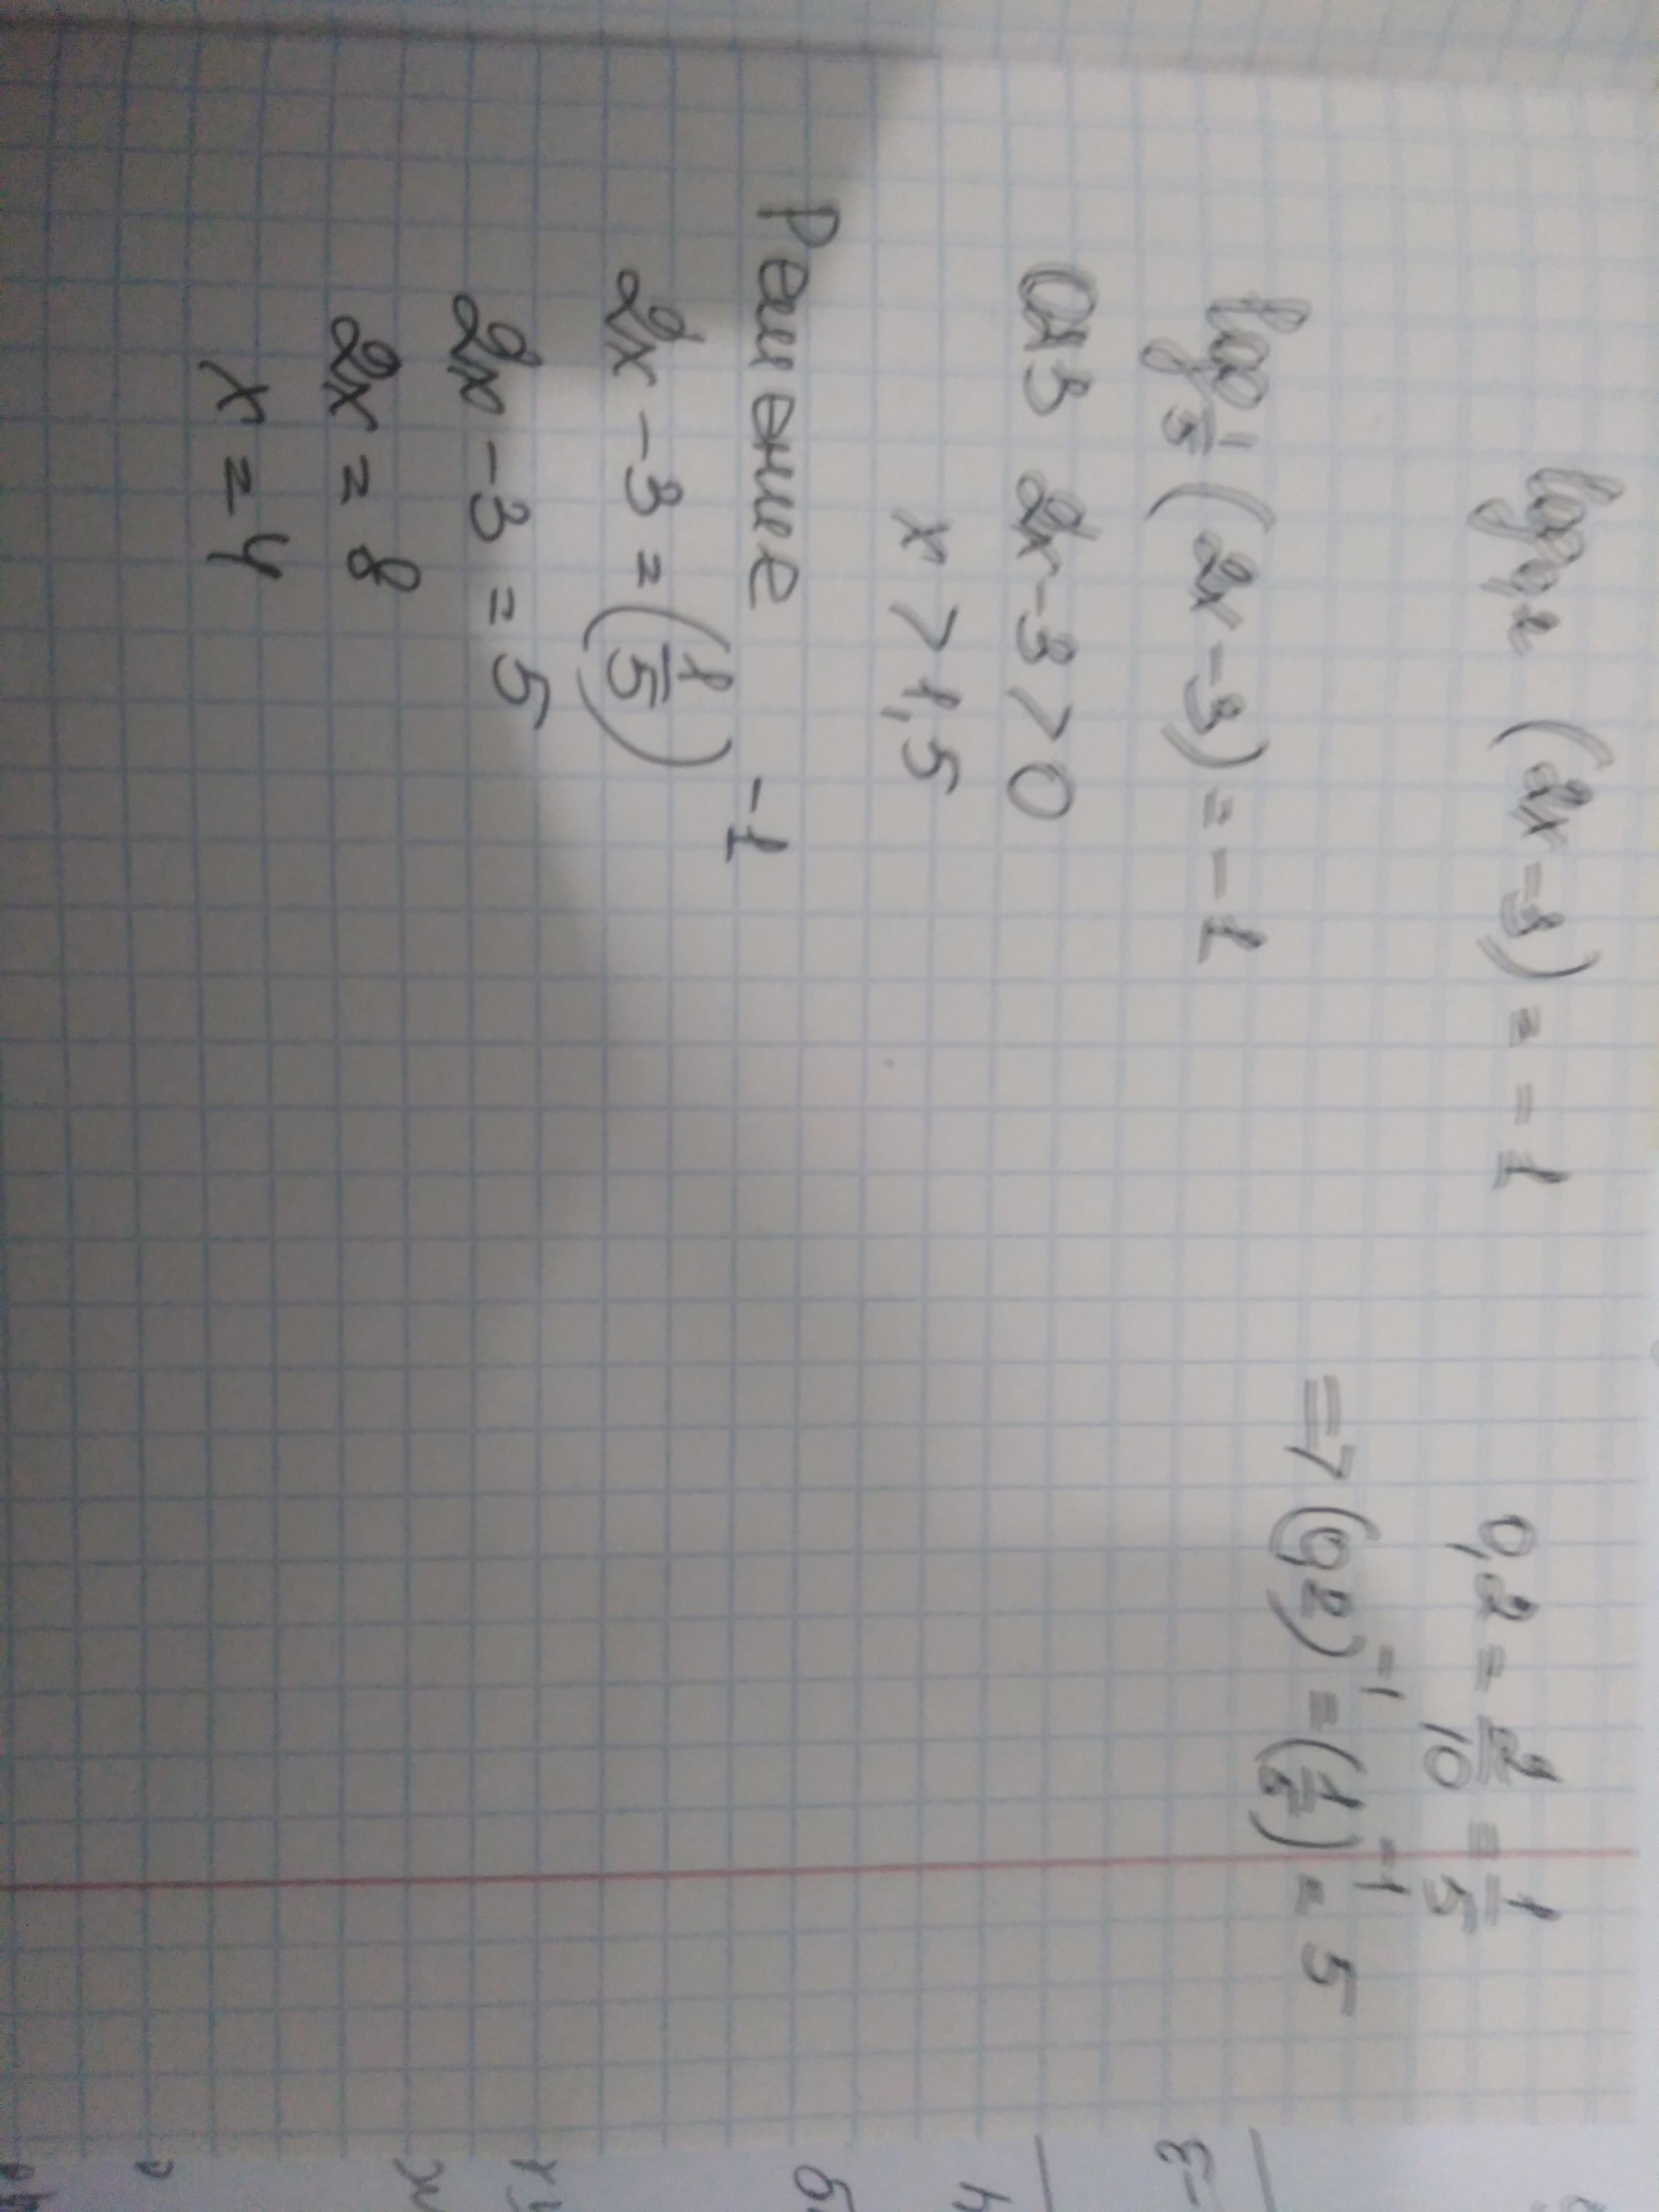 log₀,₂ (2x-3) = -1
0,2 = 2/10 = 1/5
log 1/5 (2x-3) = -1
=> (0,2)⁻¹ = (1/5)⁻¹ = 5
ОДЗ 2x-3>0
x > 1,5
Решение
2x-3 = (1/5)⁻¹
2x-3 = 5
2x = 8
x = 4